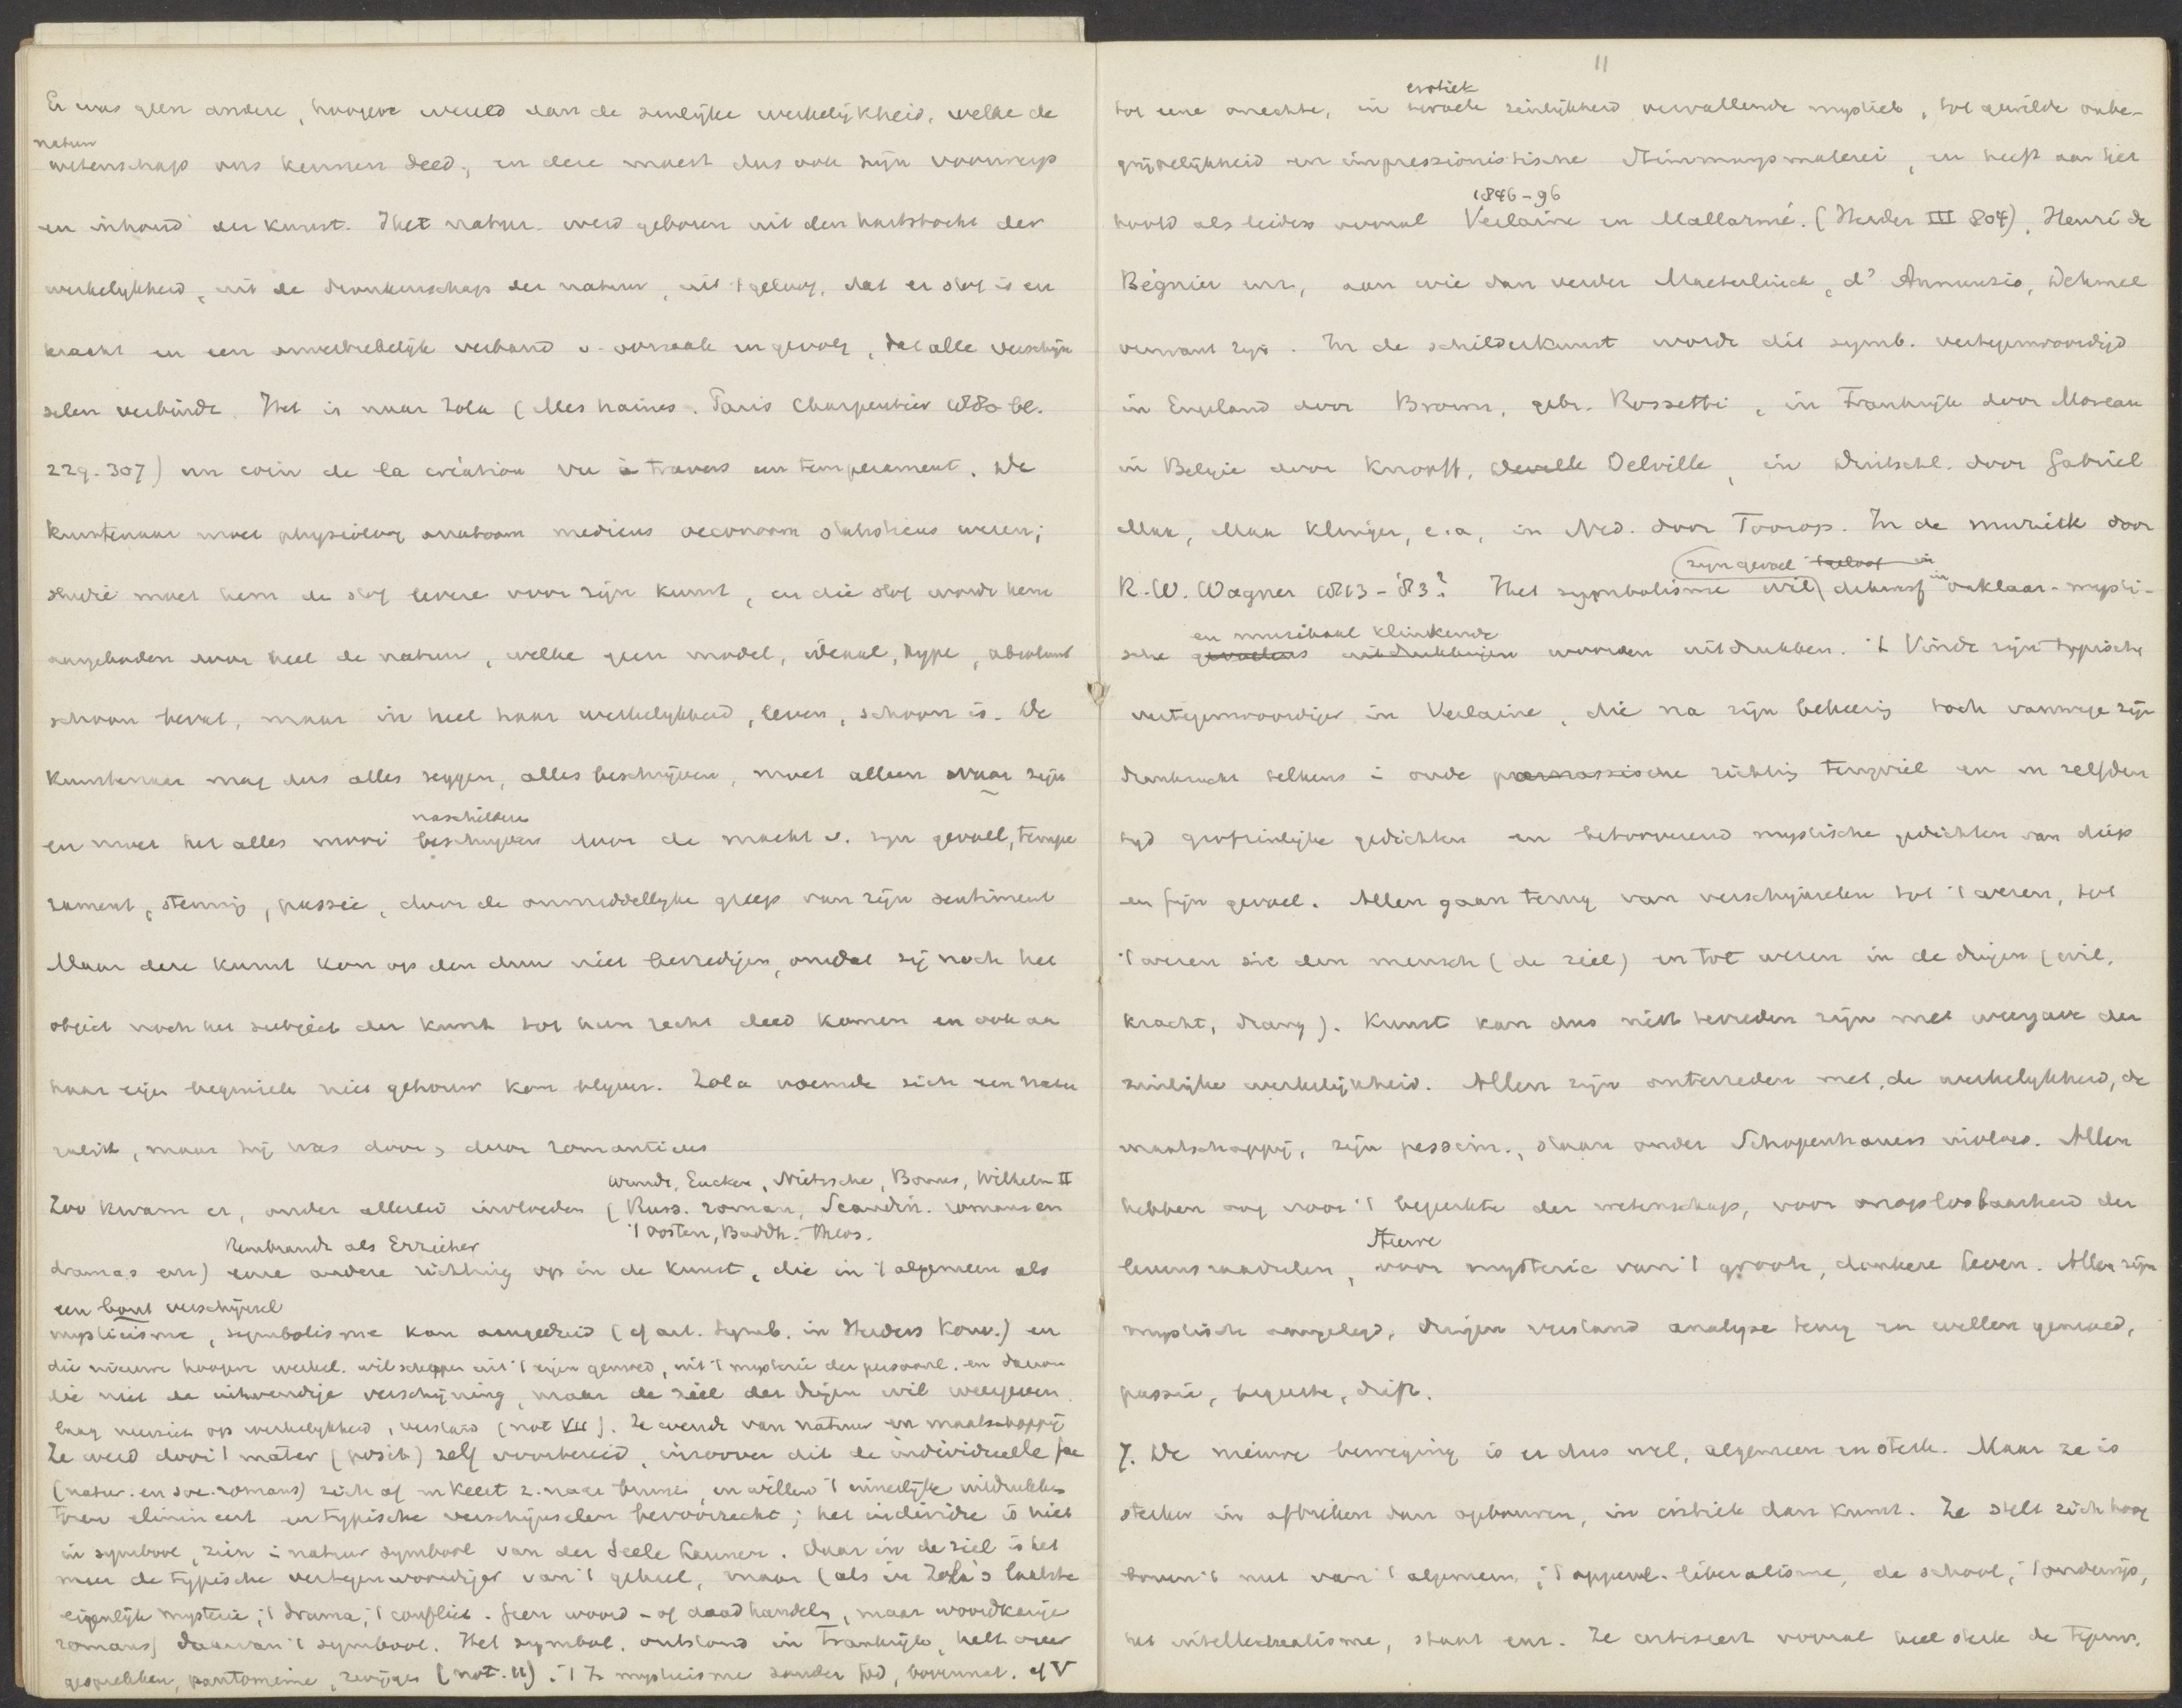 Er was geen andere, hoogere wereld dan de zinlijke werkelijkheid, welke de
natuur
wetenschap ons kennen deed, en deze moest dus ook zijn voorwerp
en inhoud der kunst. Het natur. werd geboren uit den hartstocht der
werkelijkheid, uit de dronkenschap der natuur, uit 't geloof, dat er stof is en
kracht en een onverbrekelijk verband v. oorzaak en gevolg, dat alle verschijn
selen verbindt. Het is naar Zola (Mes haines. Paris Charpentier 1880 bl.
229. 307) un coin de la création vu à travers un temperament. De
kunstenaar moet physioloog anatoom medicus oeconoom statisticus wezen;
studie moet hem de stof levere voor zijn kunst, en die stof wordt hem
aangeboden door heel de natuur, welke geen model, ideaal, type, absoluut
schoon bevat, maar in heel haar werkelijkheid, leven, schoon is. De
kunstenaar mag dus alles zeggen, alles beschrijven, moet alleen waar zijn
naschilderen
en moet het alles mooi beschrijven door de macht v. zijn gevoel, tempe
rament, stemmg, passie, door de onmiddellijke greep van zijn sentiment
Maar deze kunst kon op den duur niet bevredigen, omdat zij noch het
object noch het subject der kunst tot hun recht deed komen en ook aan
haar eigen beginsele niet getrouw kon blijven. Zola noemde zich een natu
ralist, maar hij was door & door romanticus
Wundt, Eucken, Nietzsche, Bonus, Wilhelm II
Zoo kwam er, onder allerlei invloeden (Russ. roman, Scandin. romans en
't oosten, Buddh. Theos.
Rembrandt als Erzieher
dramas enz) eene andere richting op in de kunst, die in 't algemeen als
een bont verschijnsel
mysticisme, symbolisme kan aangeduid (cf art. Symb. in Herders Konv.) en
die nieuwe hoogere werkel. wil scheppen uit 't eigen gemoed, uit 't mysterie der persoonl. en daarom
die niet de uitwendige verschijning, maar de ziel der dingen wil weergeven
laag neerziet op werkelijkheid, verstand (not VII). Ze wendt van natuur en maatschappij
Ze werd door 't mater (posit) zelf voorbereid, inzoover dit de individueele
(natur. en soc. romans) zich af en keert z. naar binnen, en willen 't innerlijke uitdrukken
elimineert en typische verschijnselen bevoorrecht; het individu is niet
in symbool, zien in natuur symbool van der Seele Launen. Daar in de ziel is het
meer de typische vertegenwoordiger van 't geheel, maar (als in Zola's laatste
eigenlijk mysterie, 't drama, 't conflict. Geen woord- of daad handelg, maar woordkarige
romans) daarvan 't symbool. Het symbol. ontstond in Frankrijk, helt over
gesprekken, pantomime, zwijgen (not. 11). 't Is mysticisme zonder God, bovennat. cf V
11
erotiek
tot eene onechte, in zinlijkheid vervallende mystiek, tot gewilde onbe-
grijpelijkheid en impressionistische Stimmungsmalerei, en heeft aan het
1846-96
hoofd als leiders vooral Verlaine en Mallarmé. (Herder III 804), Henri de
Régnier enz, aan wie dan verder Maeterlinck, d'Annunzio, Dehmel
verwant zijn. In de schilderkunst wordt dit symb. vertegenwoordigd
in Engeland door Brown, gebr. Rossetti, in Frankrijk door Moreau
in Belgie door Knopff, Delville, in Duitschl. door Gabriel
Max, Max Klinger, e.a, in Ned. door Toorop. In de muziek door
zijn gevoel
R. W. Wagner 1813-83? Het symbolisme wil in onklaar-mysti-
en muzikaal klinkende
sche woorden uitdrukken. 't Vindt zijn typische
vertegenwoordiger in Verlaine, die na zijn bekeering toch vanwege zijn
drankzucht telkens i oude parnassische richting terugviel en in zelfden
tijd grofzinlijke gedichten en betooverend mystische gedichten van diep
en fijn gevoel. Allen gaan terug van verschijnselen tot 't wezen, tot
't wezen in den mensch (de ziel) en tot wezen in de dingen (wil,
kracht, drang). Kunst kan dus niet tevreden zijn met weergave der
zinlijke werkelijkheid. Allen zijn ontevreden met de werkelijkheid, de
maatschappij, zijn pessim., staan onder Schopenhauers invloed. Allen
hebben oog voor 't beperkte der wetenschap, voor onoplosbaarheid der
levensraadselen, voor mysterie van 't groote, donkere leven. Allen zijn
mystisch aangelegd, dringen verstand analyse terug en willen gemoed,
passie, begeerte, drift.
7. De nieuwe beweging is er dus wel, algemeen en sterk. Maar ze is
sterker in afbreken dan opbouwen, in critiek dan kunst. Ze stelt zich hoog
boven 't nut van 't algemeen, 't oppervl. liberalisme, de school, 't onderwijs,
het intellectualisme, staat enz. Ze critiseert vooral heel sterk de tegenw.